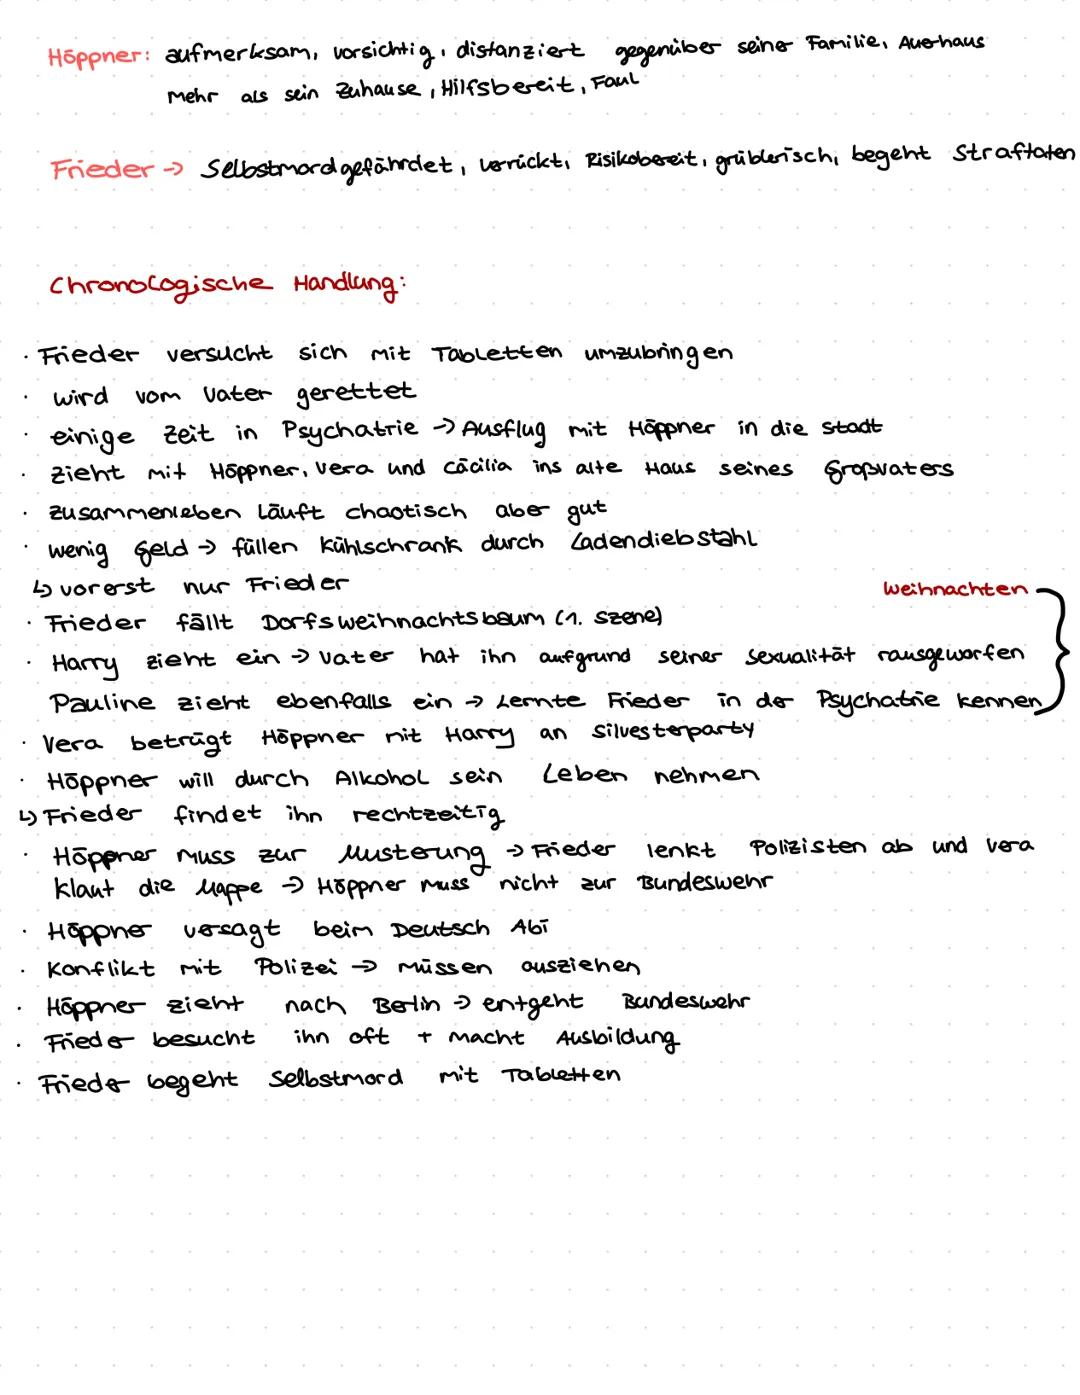 Höppner: aufmerksam, vorsichtig, distanziert gegenüber seiner Familie, Auerhaus
Mehr als sein Zuhause, Hilfsbereit, Faul
Frieder -> Selbstmordgefährdet, verrückt, Risikobereit, grüblerisch, begeht Straftaten
Chronologische Handlung:
· Frieder versucht sich mit Tabletten umzubringen
· wird vom Vater gerettet
· einige Zeit in Psychatrie -> Ausflug mit Höppner in die Stadt
· zieht mit Höppner, Vera und Cäcilia ins alte Haus seines Großvaters
· zusammenleben läuft chaotisch aber gut
· wenig Geld -> füllen Kühlschrank durch Ladendiebstahl
↳ vorerst nur Frieder
Weihnachten
· Frieder fällt Dorfsweihnachtsbaum (1. Szene)
· Harry zieht ein -> Vater hat ihn aufgrund seiner Sexualität rausgeworfen
Pauline zieht ebenfalls ein -> Lernte Frieder in der Psychatrie kennen
· Vera betrügt Höppner mit Harry an Silvesterparty
· Höppner will durch Alkohol sein Leben nehmen
↳ Frieder findet ihn rechtzeitig
· Höppner muss zur Musterung -> Frieder lenkt Polizisten ab und Vera
klaut die Mappe -> Höppner muss nicht zur Bundeswehr
· Höppner versagt beim Deutsch Abi
· Konflikt mit Polizei -> müssen ausziehen
· Höppner zieht nach Berlin -> entgeht Bundeswehr
· Frieder besucht ihn oft + macht Ausbildung
· Frieder begeht Selbstmord mit Tabletten